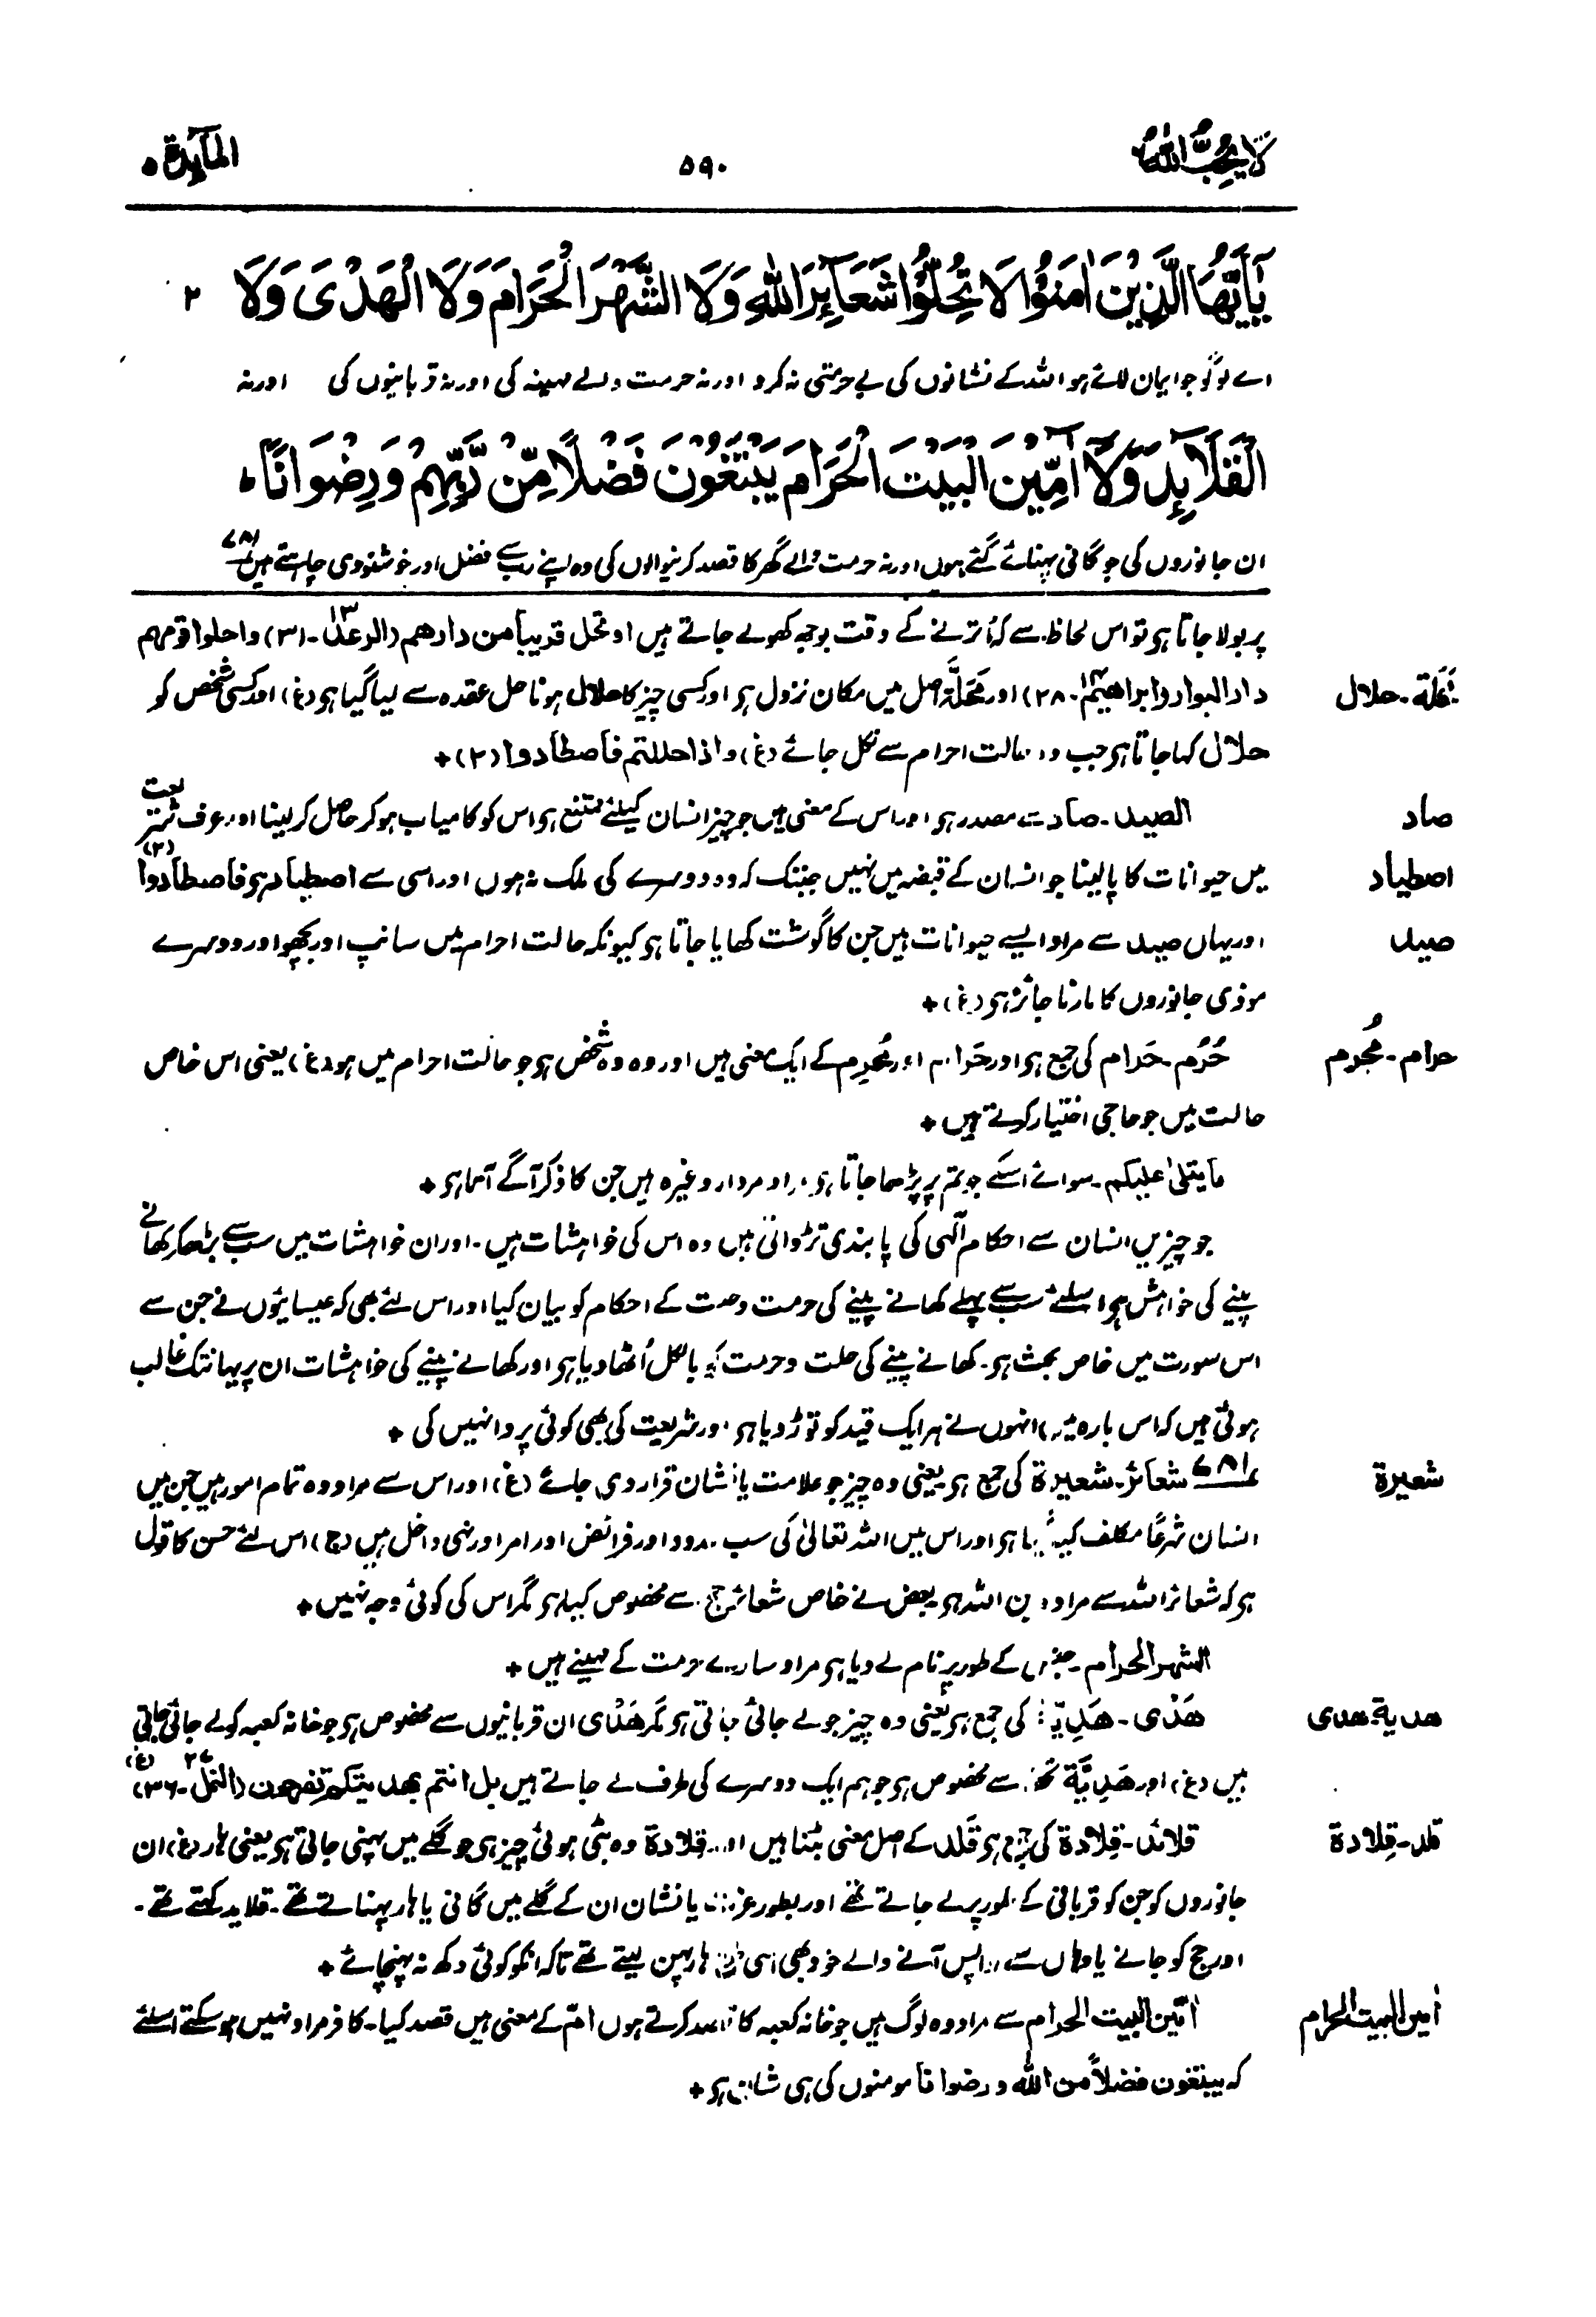 لا یحب اللہ ۵۹۰ المآئدۃ ۵
یٰۤاَیُّهَا الَّذِیْنَ اٰمَنُوْا لَا تُحِلُّوْا شَعَآىِٕرَ اللّٰهِ وَ لَا الشَّهْرَ الْحَرَامَ وَ لَا الْهَدْیَ وَ لَا ۲
اے لوگو جو ایمان لائے ہو اللہ کے نشانوں کی بے حرمتی نہ کرو اور نہ حرمت والے مہینہ کی اور نہ قربانیوں کی اور نہ
الْقَلَآىِٕدَ وَ لَاۤ اٰمِّیْنَ الْبَیْتَ الْحَرَامَ یَبْتَغُوْنَ فَضْلًا مِّنْ رَّبِّهِمْ وَ رِضْوَانًا ؕ
ان جانوروں کی جو گانی پہنائے گئے ہوں اور نہ حرمت والے گھر کا قصد کرنیوالوں کی وہ اپنے رب سے فضل اور خوشنودی چاہتے ہیں ۷۸۱
پر بولا جاتا ہی تو اس لحاظ سے کہ اُترنے کے وقت بوجھ کھولے جاتے ہیں او تحل قریبا من دارهم (الرعد ۱۳-۳۱) واحلوا قومهم
محلة - حلال
دار البوار (ابراهیم ۱۴-۲۸) اور مَحَلَّة اصل میں مکان نزول ہی اور کسی چیز کا حلال ہونا حل عقدہ سے لیا گیا ہی (غ) اور کسی شخص کو
حلال کہا جاتا ہی جب وہ حالت احرام سے نکل جائے (غ) واذا حللتم فاصطادوا (۲) +
صاد
الصید - صاد سے مصدر ہی اور اس کے معنی ہیں جو چیز انسان کیلئے ممتنع ہی اس کو کامیاب ہو کر حاصل کر لینا اور عرف شریعت
اصطیاد
میں حیوانات کا پالینا جو انسان کے قبضہ میں نہیں جبتک کہ وہ دوسرے کی ملک نہ ہوں اور اسی سے اصطیاد ہی فاصطادوا (۲)
صید
اور یہاں صید سے مراد ایسے حیوانات ہیں جن کا گوشت کھایا جاتا ہی کیونکہ حالت احرام میں سانپ اور بچھو اور دوسرے
موذی جانوروں کا مارنا جائز ہی (غ) +
حرام - مُحرِم
حُرُم - حَرام کی جمع ہی اور حَرام اور مُحرِم کے ایک معنی ہیں اور وہ وہ شخص ہی جو حالت احرام میں ہو (غ) یعنی اس خاص
حالت میں جو حاجی اختیار کرتے ہیں +
ما یتلیٰ علیکم - سوائے اسکے جو تم پر پڑھا جاتا ہی مراد مردار وغیرہ ہیں جن کا ذکر آگے آتا ہی +
جو چیزیں انسان سے احکام آلٰہی کی پابندی تڑواتی ہیں وہ اس کی خواہشات ہیں - اور ان خواہشات میں سب سے بڑھکر کھانے
پینے کی خواہش ہی اسلئے سب سے پہلے کھانے پینے کی حرمت وحلت کے احکام کو بیان کیا اور اس لئے بھی کہ عیسائیوں نے جن سے
اس سورت میں خاص بحث ہی - کھانے پینے کی حلت وحرمت کو بالکل اُٹھا دیا ہی اور کھانے پینے کی خواہشات ان پر یہانتک غالب
ہوئی ہیں کہ اس بارہ میں انہوں نے ہر ایک قید کو توڑ دیا ہی اور شریعت کی بھی کوئی پروا نہیں کی +
شعیرة
۷۸۱ شعائر - شعیرة کی جمع ہی یعنی وہ چیز جو علامت یا نشان قرار دی جائے (غ) اور اس سے مراد وہ تمام امور ہیں جن میں
انسان شرعًا مکلف کیا گیا ہی اور اس میں اللہ تعالیٰ کی سب حدود اور فرائض اور امر اور نہی داخل ہیں (ج) اس لئے حسن کا قول
ہی کہ شعائر اللہ سے مراد دین اللہ ہی بعض نے خاص شعائر حج سے مخصوص کیا ہی مگر اس کی کوئی وجہ نہیں +
الشہر الحرام - جنس کے طور پر نام لے دیا ہی مراد سارے حرمت کے مہینے ہیں +
هدیة - هدی
هَدْی - هَدِیّة کی جمع ہی یعنی وہ چیز جو لے جائی جاتی ہی مگر هَدْی ان قربانیوں سے مخصوص ہی جو خانہ کعبہ کو لے جائی جاتی
ہیں (غ) اور هَدِیَّة تحفہ سے مخصوص ہی جو ہم ایک دوسرے کی طرف لے جاتے ہیں بل انتم بهدیتکم تفرحون (النمل ۲۷-۳۶) (غ)
قلد - قِلادة
قلائد - قِلادة کی جمع ہی قَلد کے اصل معنی بٹنا ہیں اور قلادة وہ بٹی ہوئی چیز ہی جو گلے میں پہنی جاتی ہی یعنی ہار (غ) ان
جانوروں کو جن کو قربانی کے طور پر لے جاتے تھے اور بطور عزت یا نشان ان کے گلے میں گانی یا ہار پہناتے تھے - قلاید کہتے تھے -
اور حج کو جانے یا وہاں سے واپس آنے والے خود بھی اسی ہار پہن لیتے تھے تاکہ انکو کوئی دکھ نہ پہنچائے +
اٰمین البیت الحرام
اٰمّین البیت الحرام سے مراد وہ لوگ ہیں جو خانہ کعبہ کا قصد کرتے ہوں امّ کے معنی ہیں قصد کیا - کافر مراد نہیں ہو سکتے اسلئے
کہ یبتغون فضلاً من اللہ ورضوانا مومنوں کی ہی شان ہی +